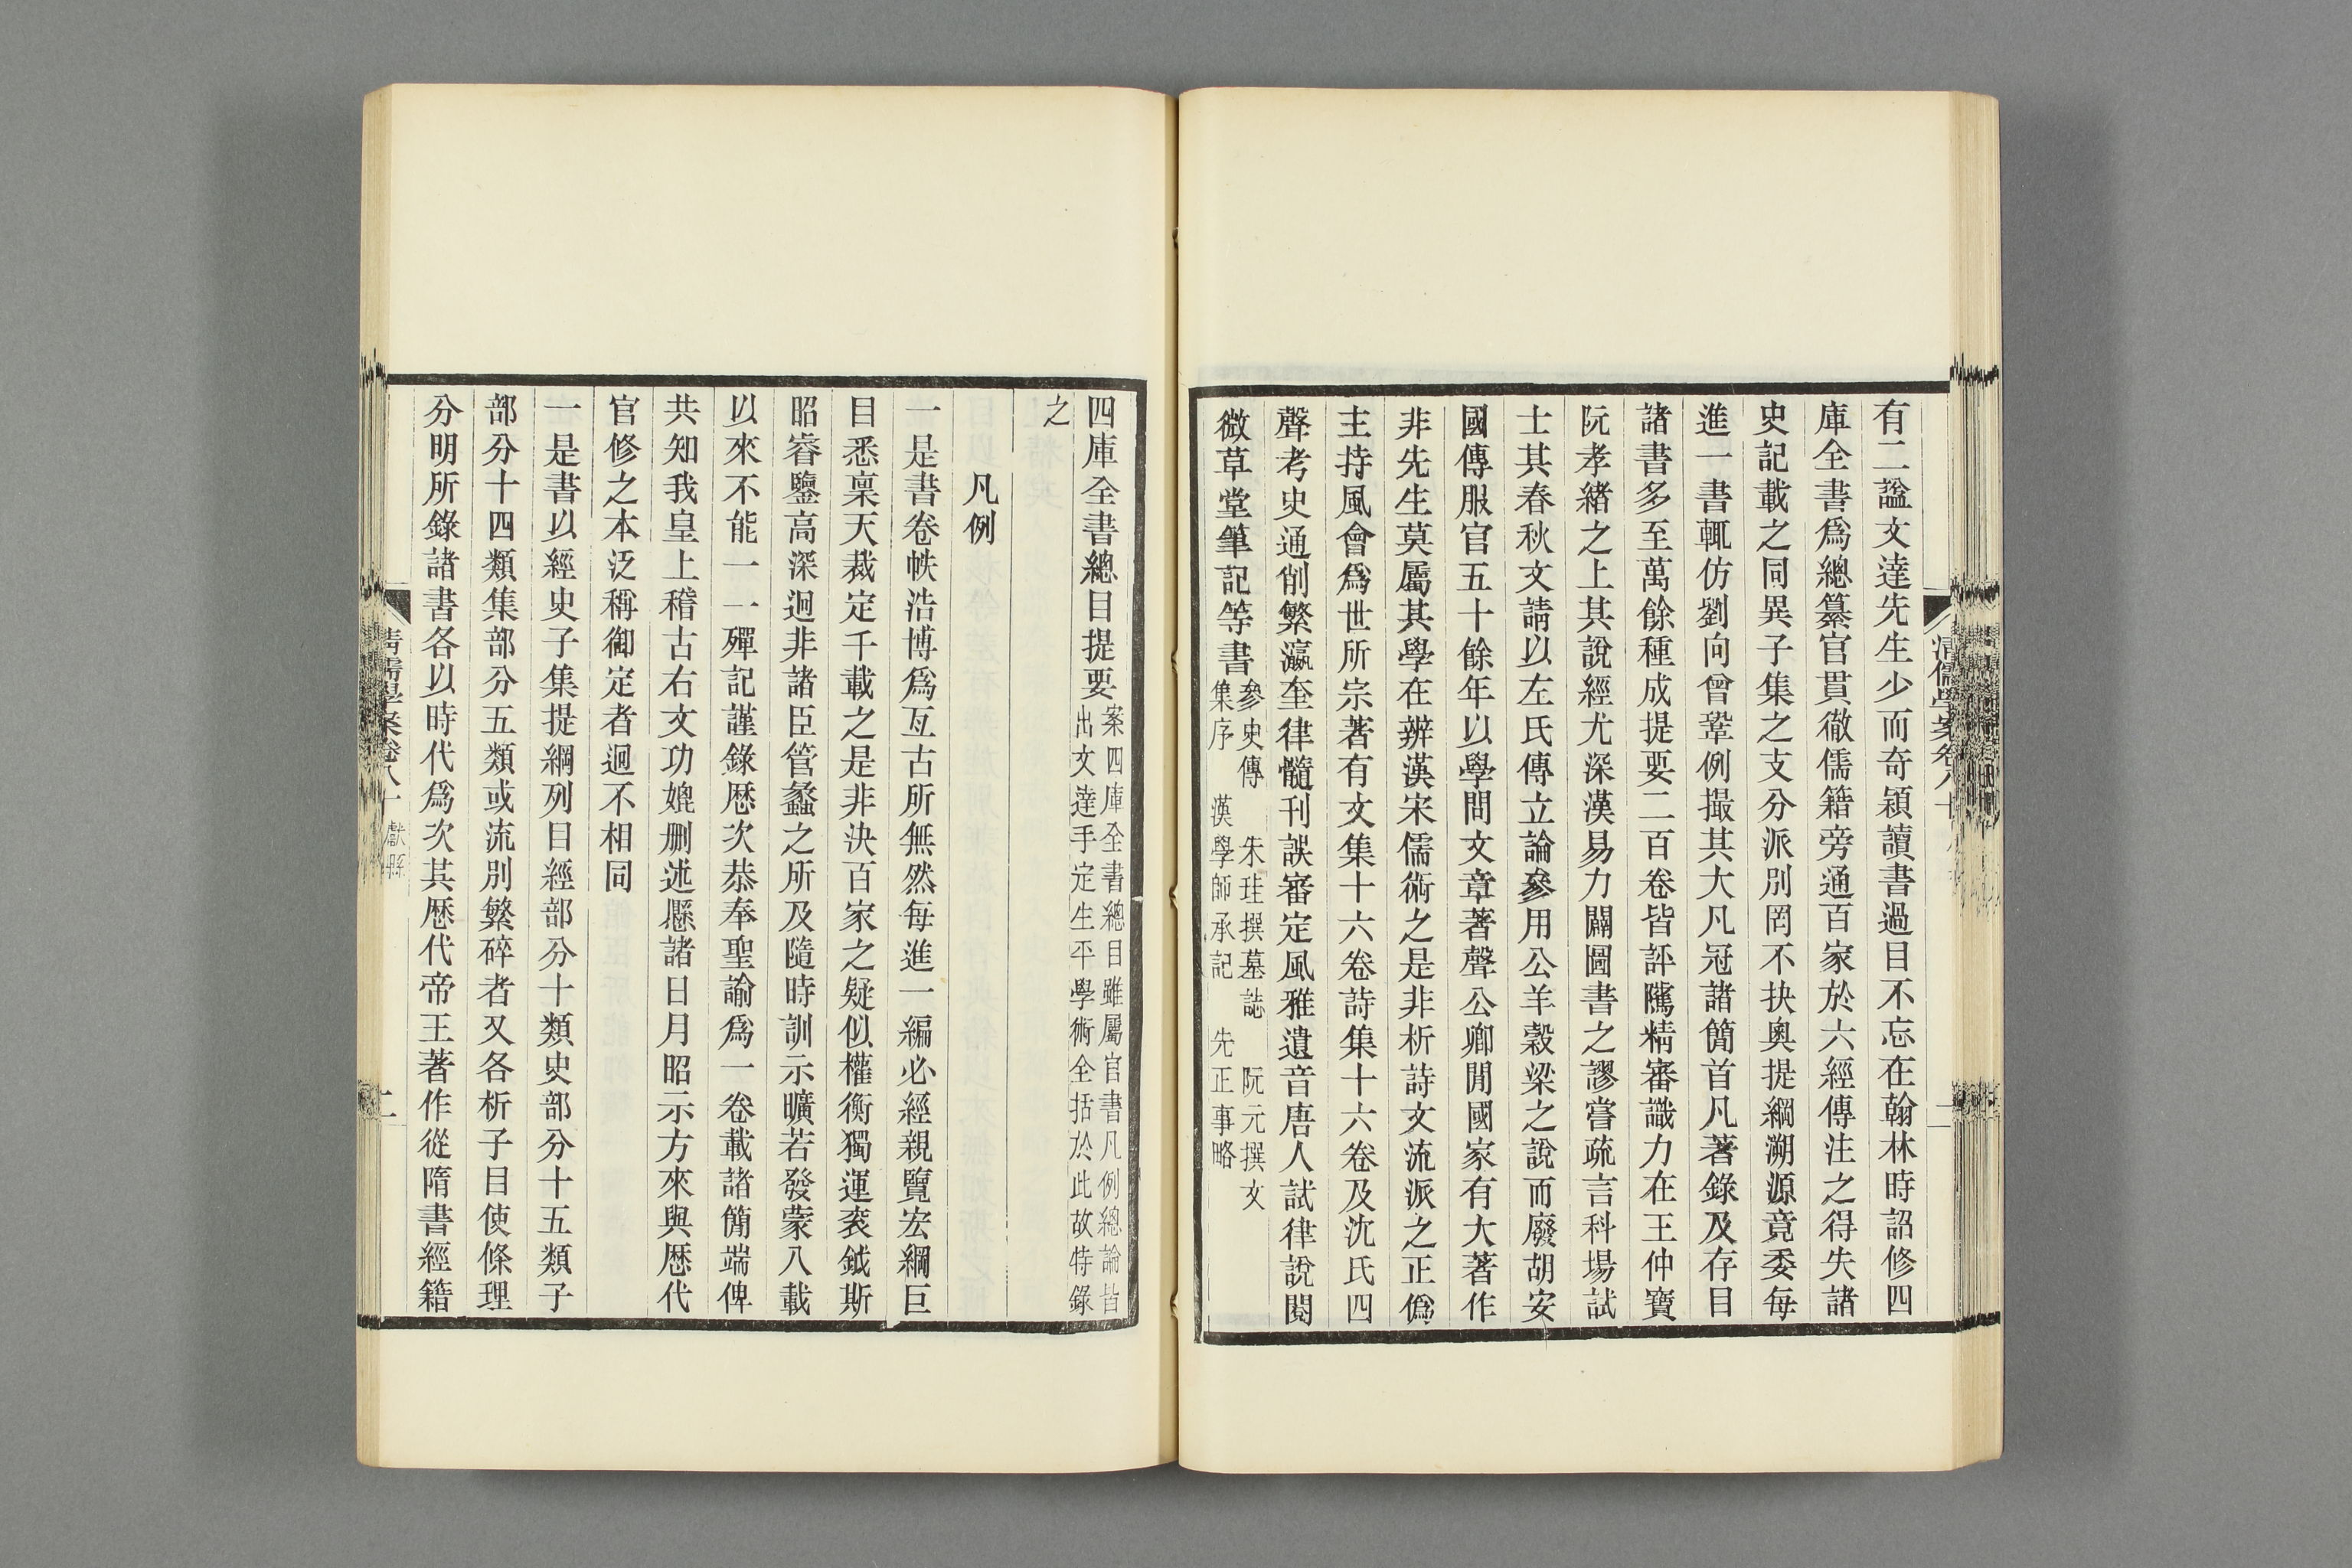 有二諡文達先生少而奇穎讀書過目不忘在翰林時詔修四
庫全書爲總纂官貫徹儒籍旁通百家於六經傳注之得失諸
史記載之同異子集之支分派別罔不抉奧提綱溯源竟委每
進一書輒仿劉向曾鞏例撮其大凡冠諸簡首凡著錄及存目
諸書多至萬餘種成提要二百卷皆評騭精審識力在王仲寶
阮孝緒之上其說經尤深漢易力闢圖書之謬嘗疏言科場試
士其春秋文請以左氏傳立論參用公羊穀梁之說而廢胡安
國傳服官五十餘年以學問文章著聲公卿閒國家有大著作
非先生莫屬其學在辨漢宋儒術之是非析詩文流派之正僞
主持風會爲世所宗著有文集十六卷詩集十六卷及沈氏四
聲考史通削繁瀛奎律髓刊誤審定風雅遺音唐人試律說閱
微草堂筆記等書參史傳 朱珪撰墓誌 阮元撰文
集序 漢學師承記 先正事略
清儒學案卷八十
二
四庫全書總目提要案四庫全書總目雖屬官書凡例總論皆
出文達手定生平學術全括於此故特錄
之
凡例
一是書卷帙浩博爲亙古所無然每進一編必經親覽宏綱巨
目悉稟天裁定千載之是非決百家之疑似權衡獨運袞鉞斯
昭睿鑒高深迥非諸臣管蠡之所及隨時訓示曠若發蒙八載
以來不能一一殫記謹錄歷次恭奉聖諭爲一卷載諸簡端俾
共知我皇上稽古右文功媲删述懸諸日月昭示方來與歷代
官修之本泛稱御定者迥不相同
一是書以經史子集提綱列目經部分十類史部分十五類子
部分十四類集部分五類或流別繁碎者又各析子目使條理
分明所錄諸書各以時代爲次其歷代帝王著作從隋書經籍
清儒學案卷八十 獻縣
二